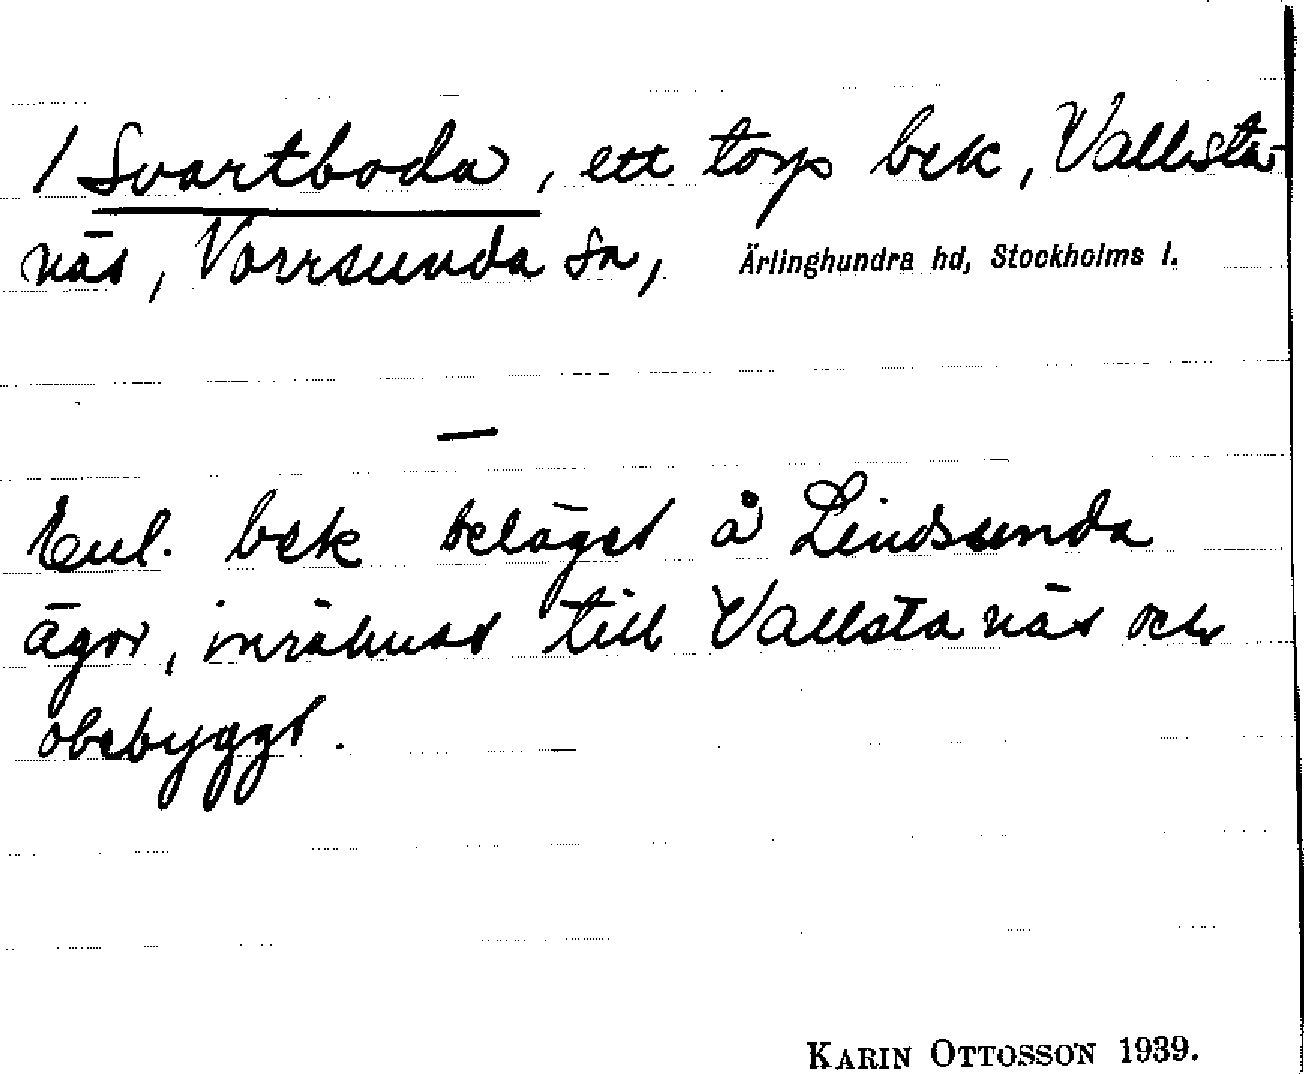 / Svartboda, ett torp bek, Vallsta-
näs, Norrsunda sn, Ärlinghundra hd, Stockholms l.
—
Enl. bek beläget å Lindsunda
ägor, inräknat till Vallsta näs och
obebyggt.
KARIN OTTOSSON 1939.